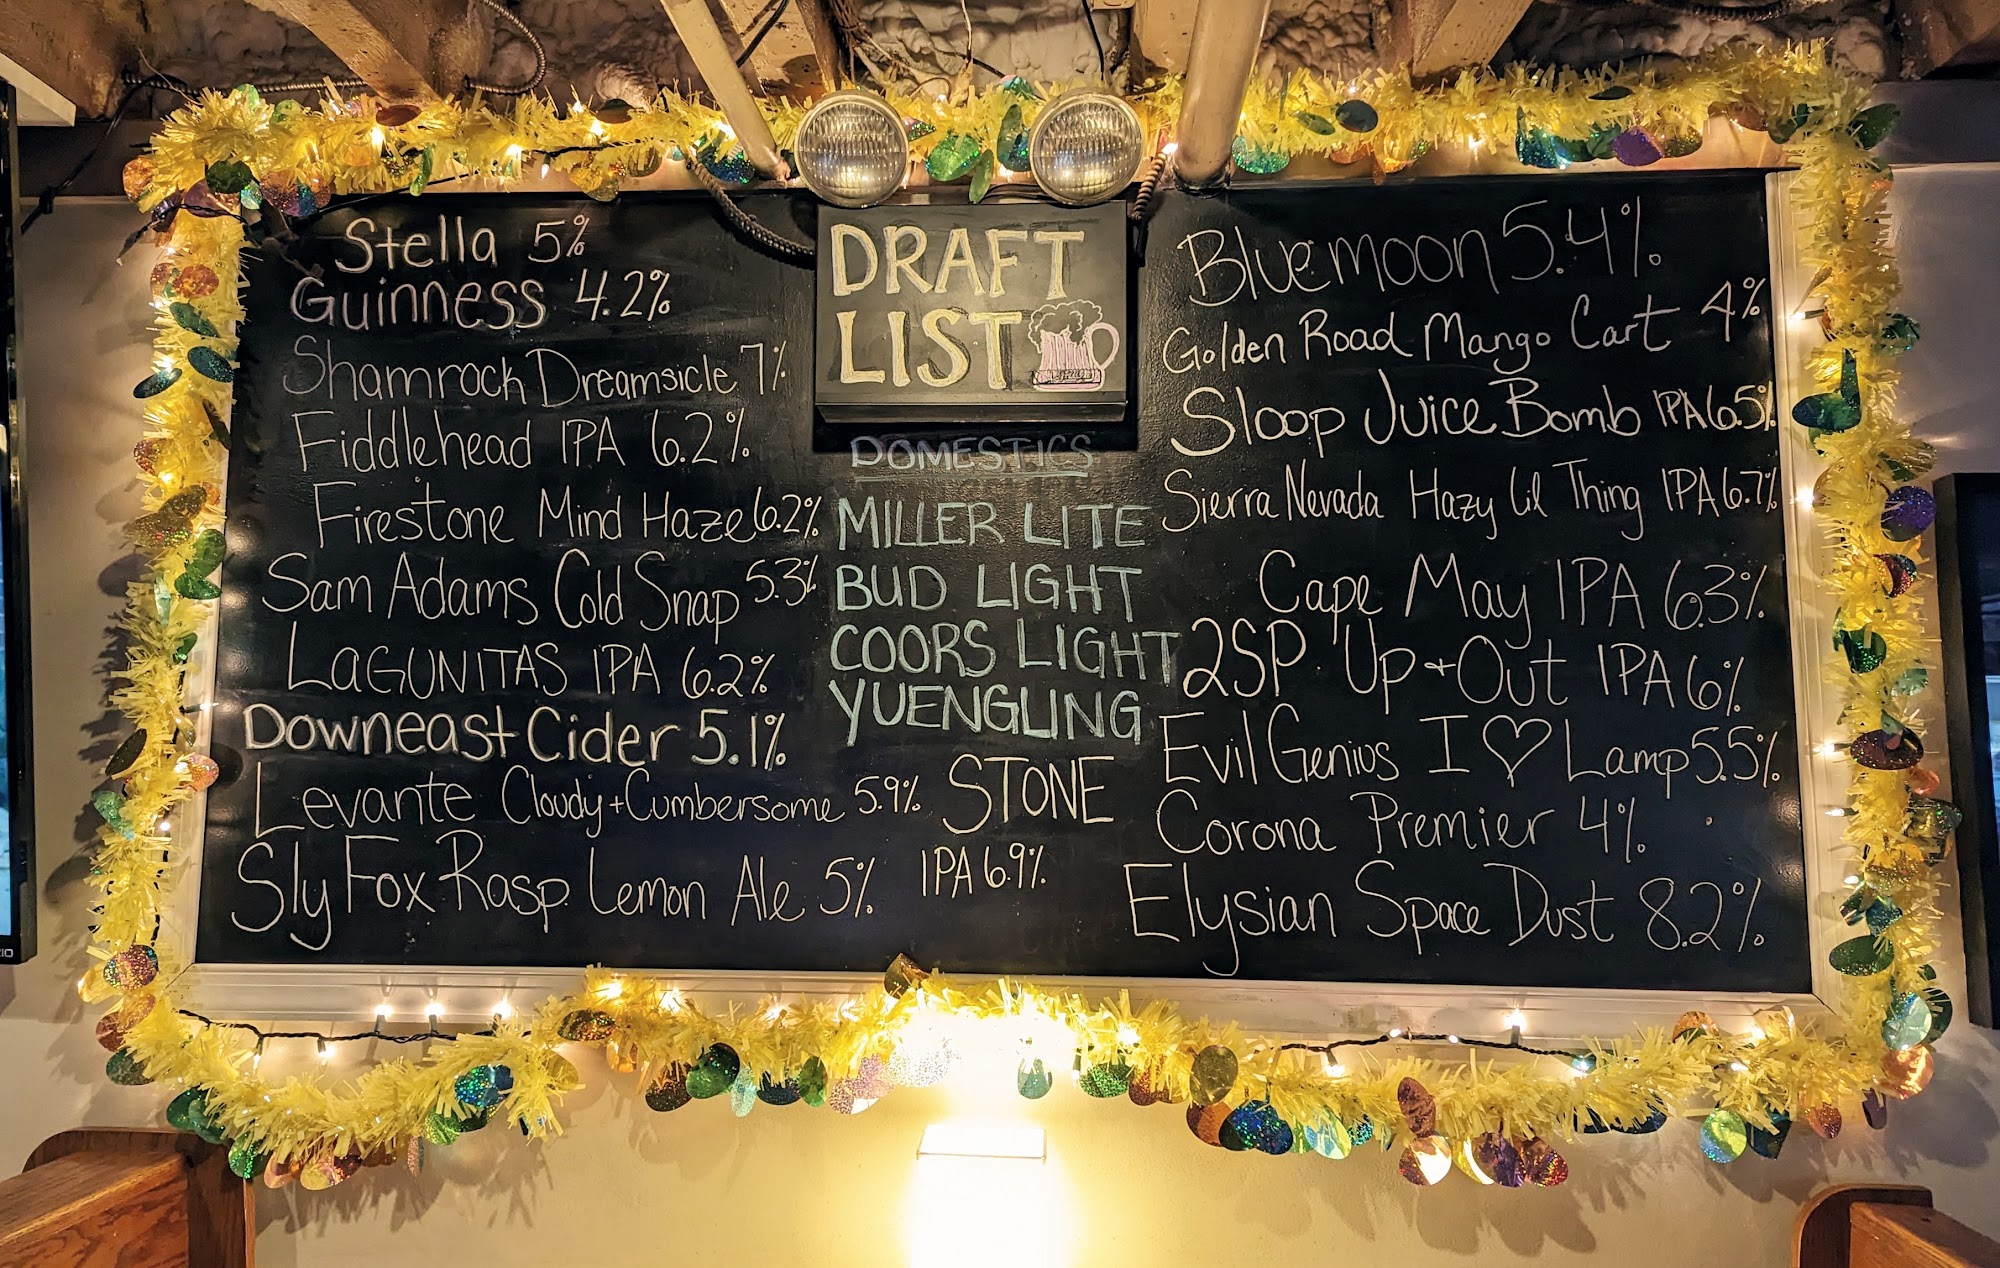 Stella 5%
Guinness 4.2%
Shamrock Dreamsicle 7%
Fiddlehead IPA 6.2%
Firestone Mind Haze 6.2%
Sam Adams Cold Snap 5.3%
LAGUNITAS IPA 6.2%
Downeast Cider 5.1%
Levante Cloudy + Cumbersome 5.9%
Sly Fox Rasp. Lemon Ale 5%
DRAFT
LIST
DOMESTICS
MILLER LITE
BUD LIGHT
COORS LIGHT
YUENGLING
STONE
IPA 6.9%
Blue moon 5.4%
Golden Road Mango Cart 4%
Sloop Juice Bomb IPA 6.5%
Sierra Nevada Hazy Lil Thing IPA 6.7%
Cape May IPA 6.3%
2SP Up + Out IPA 6%
Evil Genius I ♡ Lamp 5.5%
Corona Premier 4%
Elysian Space Dust 8.2%